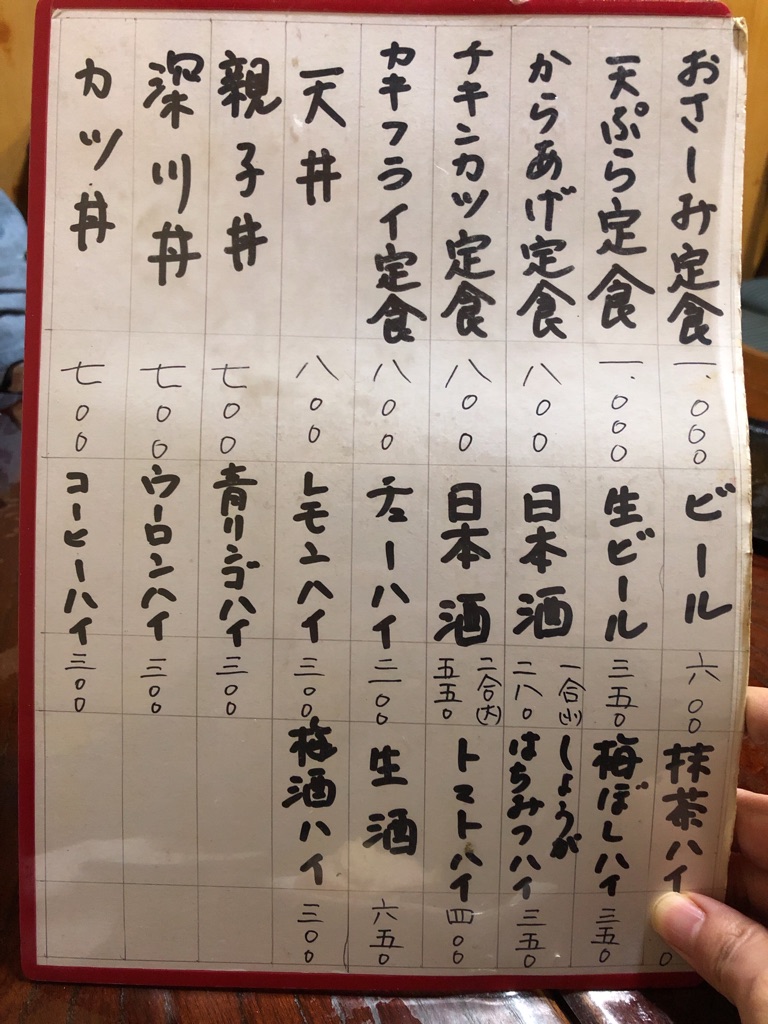 おさしみ定食 一、〇〇〇
天ぷら定食 一、〇〇〇
からあげ定食 八〇〇
チキンカツ定食 八〇〇
カキフライ定食 八〇〇
天丼 八〇〇
親子丼 七〇〇
深川丼 七〇〇
カツ丼 七〇〇
ビール 六〇〇
生ビール 三五〇
日本酒 一合(小) 二八〇
日本酒 二合(大) 五五〇
チューハイ 二〇〇
レモンハイ 三〇〇
青リンゴハイ 三〇〇
ウーロンハイ 三〇〇
コーヒーハイ 三〇〇
抹茶ハイ
梅ぼしハイ 三五〇
しょうが
はちみつハイ 三五〇
トマトハイ 四〇〇
生酒 六五〇
梅酒ハイ 三〇〇